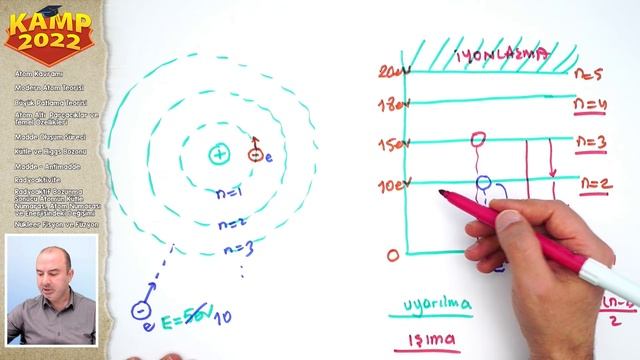 KAMP
2022
Atom Kavramı
Modern Atom Teorisi
Büyük Patlama Teorisi
Atom Altı Parçacıklar ve
Temel Özellikleri
Madde Oluşum Süreci
Kütle ve Higgs Bozonu
Madde - Antimadde
Radyoaktivite
Radyoaktif Bozunma
Sonucu Atomun Kütle
Numarası, Atom Numarası
ve Enerjisindeki Değişimi
Nükleer Fisyon ve Füzyon
+
- e
n=1
n=2
n=3
- e
E=5eV 10
İYONLAŞMA
20eV n=5
18eV n=4
15eV n=3
10eV n=2
0
uyarılma
ışıma
2